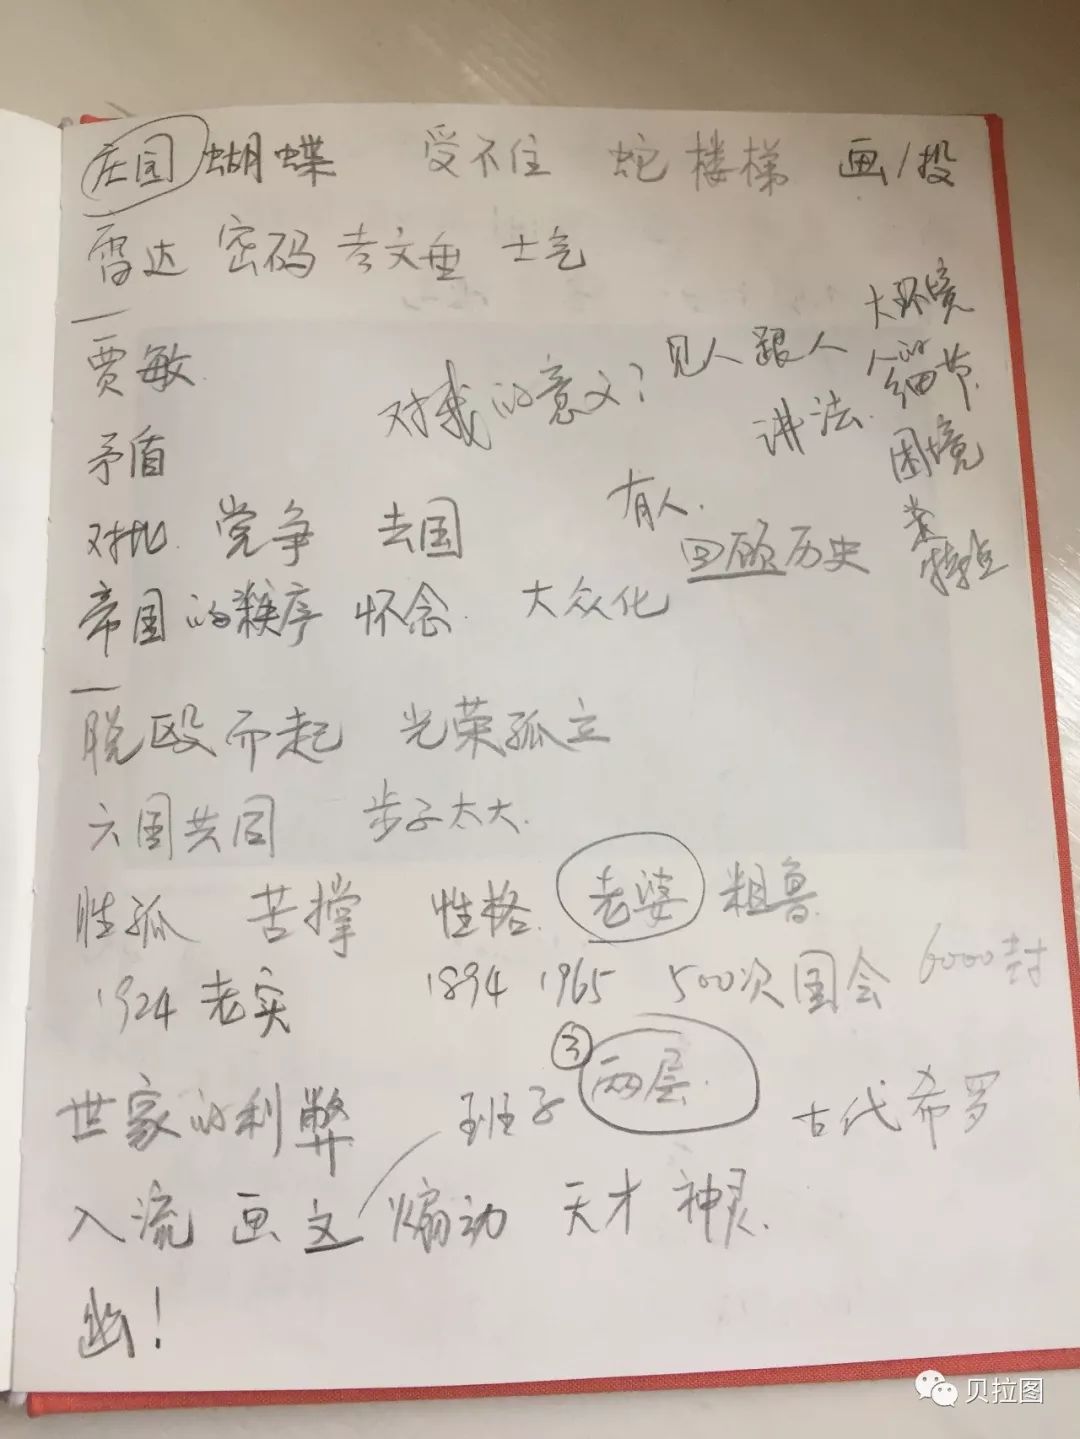 庄园 蝴蝶 受不住 蛇 楼梯 画/投
雷达 密码 考文垂 士气
贾敏
对我的意义?
见人跟人
讲法.
大环境
人的
细节.
困境
矛盾
有人.
回顾历史
对比 党争 去国
帝国的秩序 怀念. 大众化
脱殴而起 光荣孤立
六国共同 步子太大.
性孤 苦撑 性格. 老婆 粗鲁
1924 老实 1894 1965 500次国会 6000封
世家的利弊 班子 ③ 两层. 古代希罗
入流 画 文 煽动 天才 神灵.
幽!
贝拉图